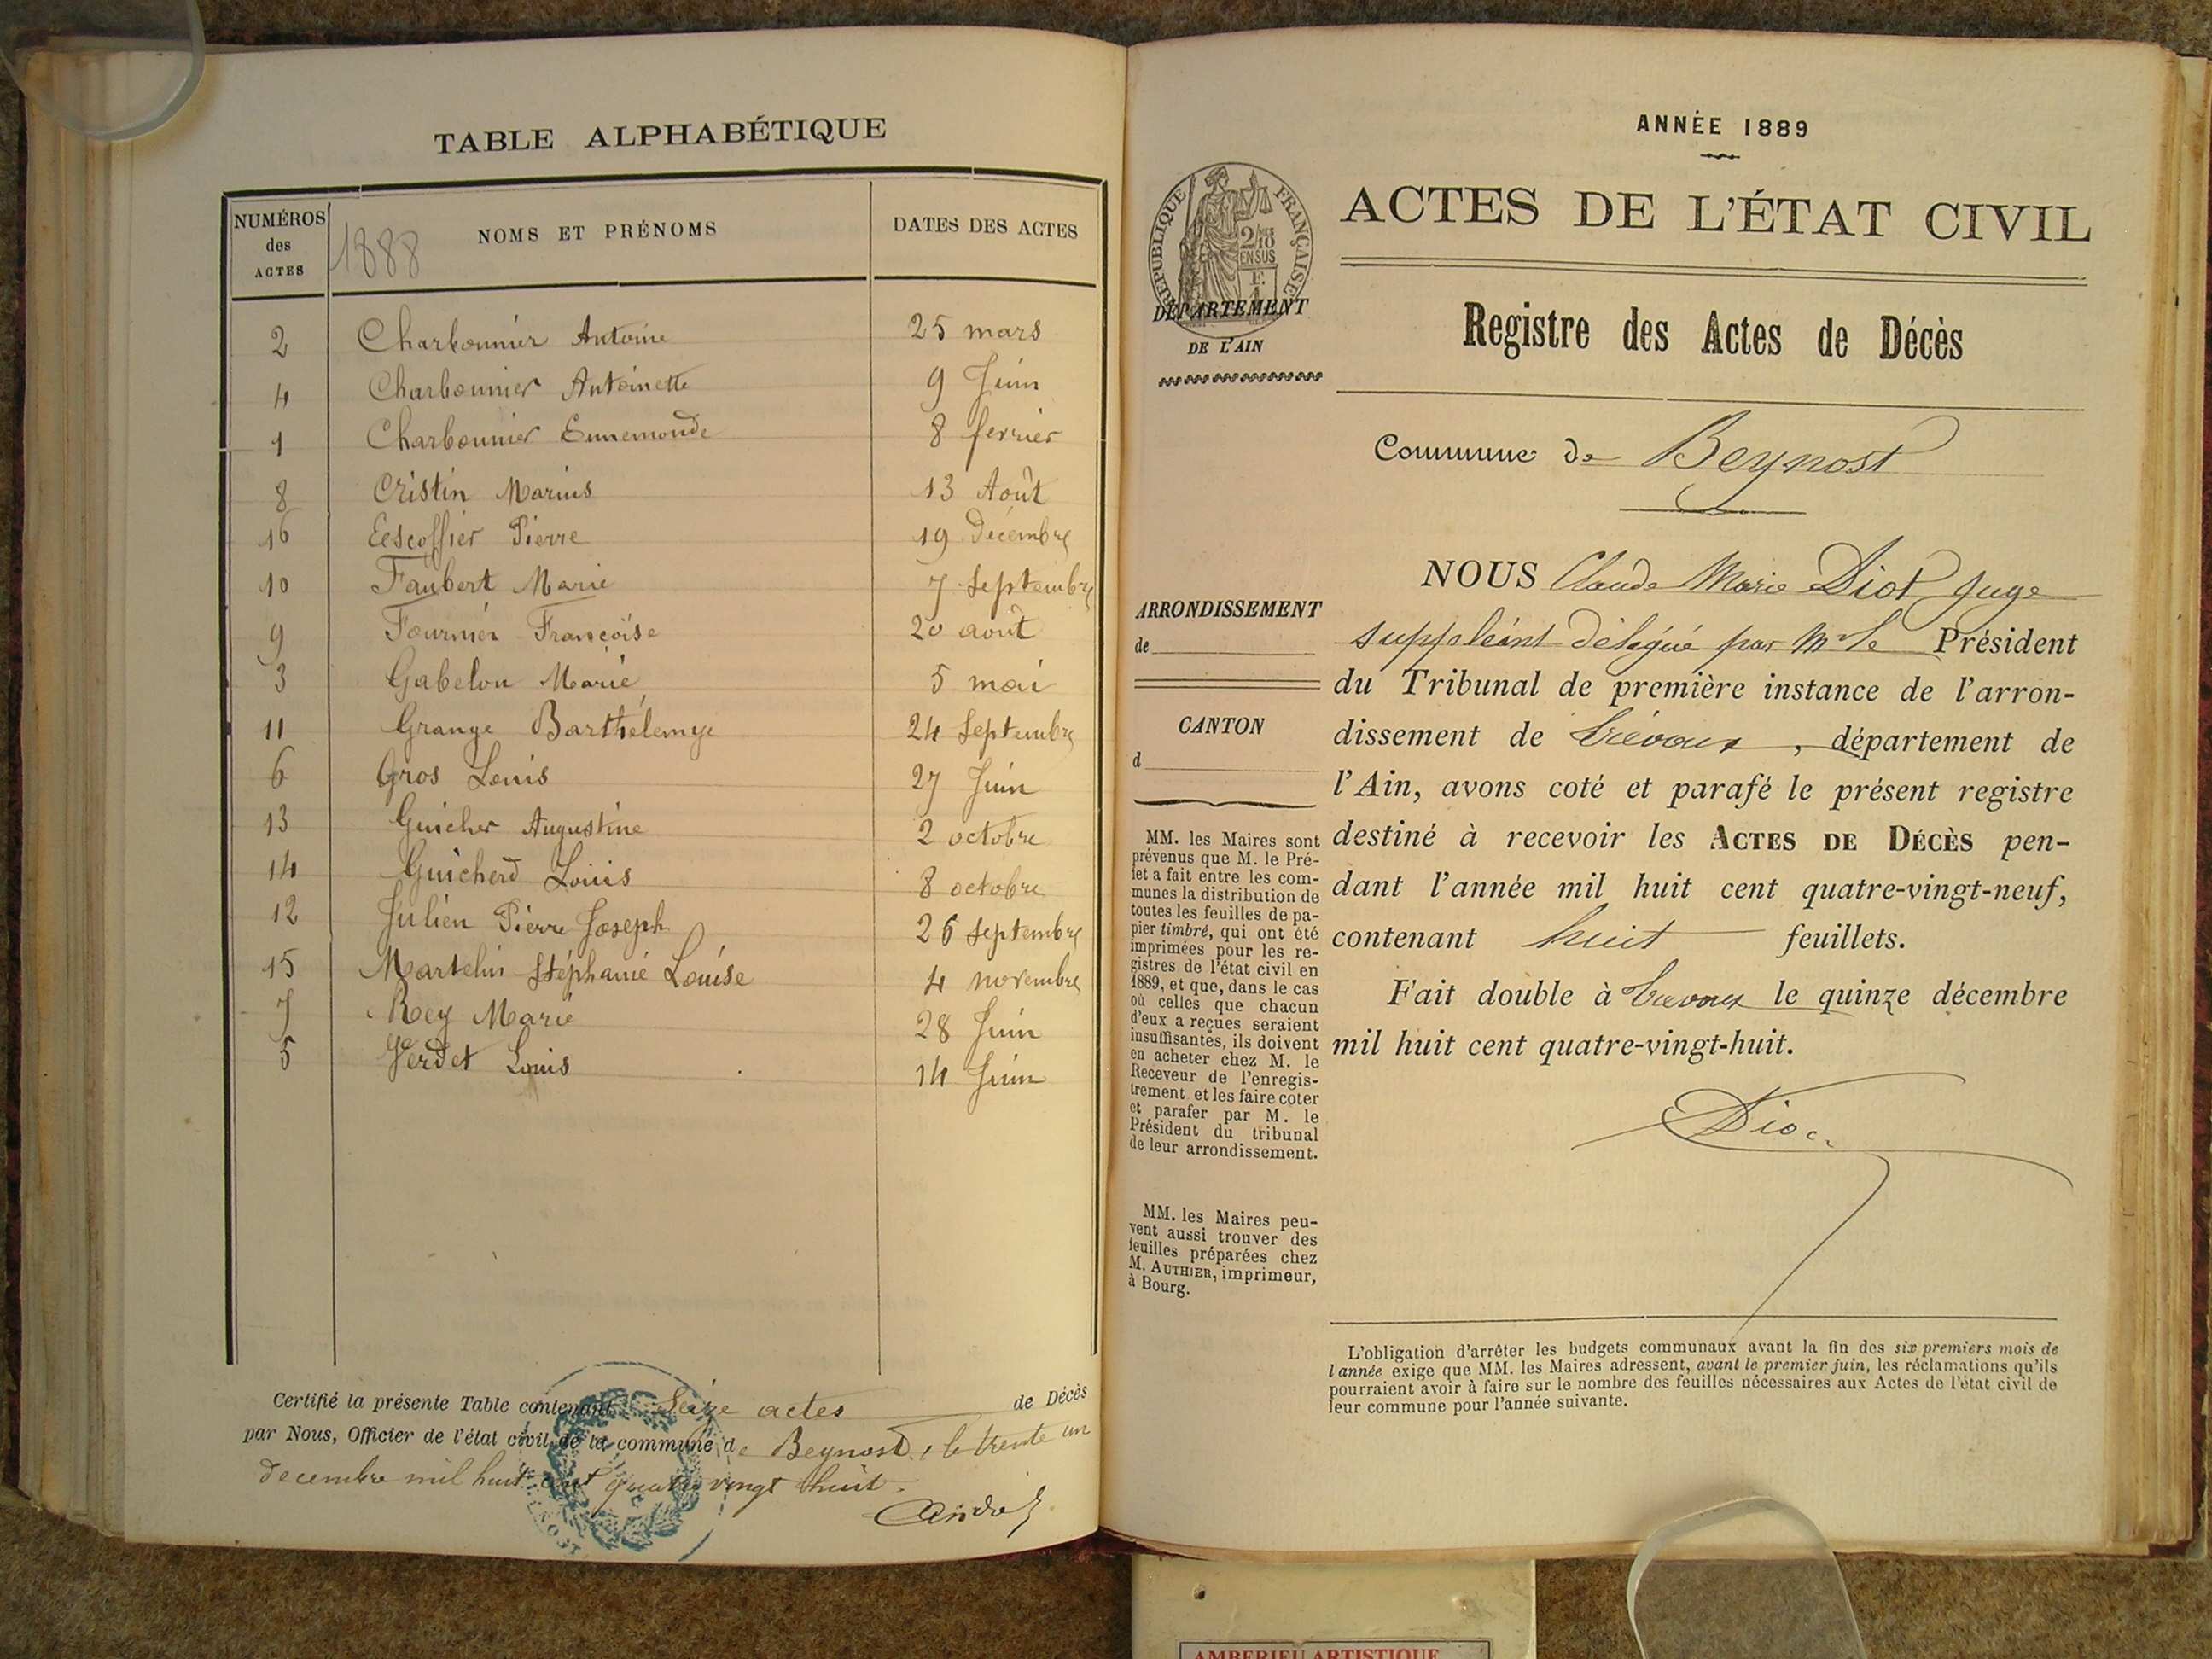 TABLE ALPHABÉTIQUE
NUMÉROS des ACTES
1888
NOMS ET PRÉNOMS
DATES DES ACTES
2 Charbonnier Antoine 25 mars
4 Charbonnier Antoinette 9 Juin
1 Charbonnier Ennemonde 8 fevrier
8 Cristin Marius 13 Août
16 Eescoffier Pierre 19 Décembre
10 Faubert Marie 7 Septembre
9 Fournier Françoise 20 août
3 Gabelon Marie 5 mai
11 Grange Barthélemye 24 Septembre
6 Gros Louis 27 Juin
13 Guicher Augustine 2 octobre
14 Guicherd Louis 8 octobre
12 Julien Pierre Joseph 26 Septembre
15 Martelin Stéphanie Louise 4 novembre
7 Rey Marie 28 Juin
5 Verdet Louis 14 Juin
Certifié la présente Table contenant Seize actes de Décès
par Nous, Officier de l'état civil de la commune de Beynost, le trente un
decembre mil huit cent quatre vingt huit.
ANNÉE 1889
RÉPUBLIQUE FRANÇAISE
DÉPARTEMENT
DE L'AIN
ACTES DE L'ÉTAT CIVIL
Registre des Actes de Décès
Commune de Beynost
ARRONDISSEMENT
de
CANTON
d
MM. les Maires sont
prévenus que M. le Pré-
fet a fait entre les com-
munes la distribution de
toutes les feuilles de pa-
pier timbré, qui ont été
imprimées pour les re-
gistres de l'état civil en
1889, et que, dans le cas
où celles que chacun
d'eux a reçues seraient
insuffisantes, ils doivent
en acheter chez M. le
Receveur de l'enregis-
trement et les faire coter
et parafer par M. le
Président du tribunal
de leur arrondissement.
MM. les Maires peu-
vent aussi trouver des
feuilles préparées chez
M. AUTHIER, imprimeur,
à Bourg.
NOUS Claude Marie Diot Juge
suppléant délégué par Mr le Président
du Tribunal de première instance de l'arron-
dissement de Trévoux, département de
l'Ain, avons coté et parafé le présent registre
destiné à recevoir les ACTES DE DÉCÈS pen-
dant l'année mil huit cent quatre-vingt-neuf,
contenant huit feuillets.
Fait double à Trévoux le quinze décembre
mil huit cent quatre-vingt-huit.
L'obligation d'arrêter les budgets communaux avant la fin des six premiers mois de
l'année exige que MM. les Maires adressent, avant le premier juin, les réclamations qu'ils
pourraient avoir à faire sur le nombre des feuilles nécessaires aux Actes de l'état civil de
leur commune pour l'année suivante.
AMBERIEU ARTISTIQUE